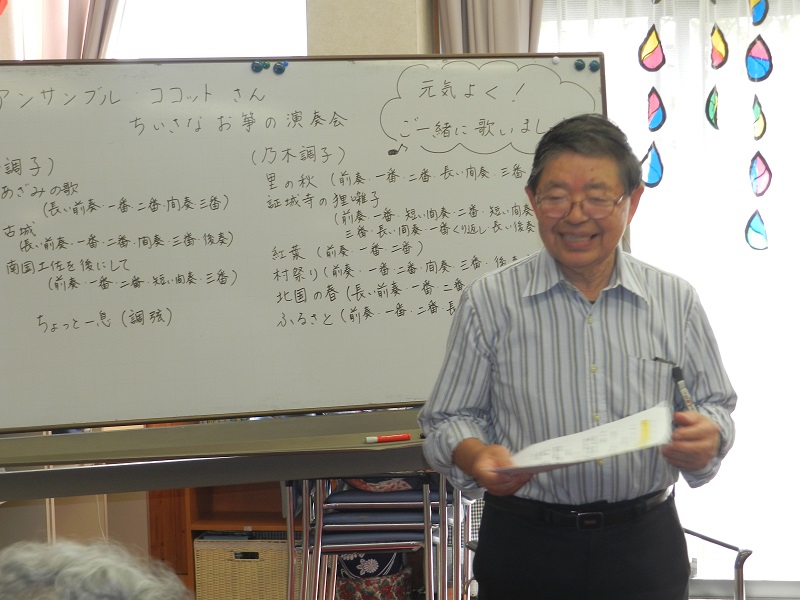 アンサンブル ココット さん
ちいさな お箏の演奏会
元気よく!
ご一緒に歌いまし
調子)
あざみの歌
(長い前奏・一番・二番・間奏・三番)
古城
(長い前奏・一番・二番・間奏・三番・後奏)
南国土佐を後にして
(前奏・一番・二番・短い間奏・三番)
ちょっと一息 (調弦)
(乃木調子)
里の秋 (前奏・一番・二番・長い間奏・三番
証城寺の狸囃子
(前奏・一番・短い間奏・二番・短い間奏
三番・長い間奏・一番くり返し・長い後奏
紅葉 (前奏・一番・二番)
村祭り (前奏・一番・二番・間奏・三番・後
北国の春 (長い前奏・一番・二
ふるさと (前奏・一番・二番・長